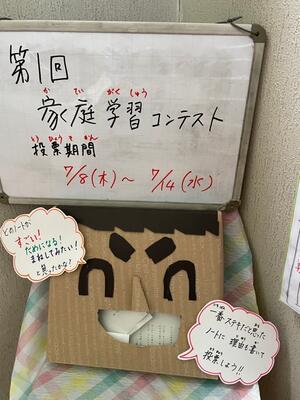 第1回
家庭学習コンテスト
かていがくしゅう
投票期間
とうひょうきかん
7/8(木)〜7/14(水)
どのノートが、
すごい!
ためになる!
まねしてみたい!
と思ったかな?
一番ステキだと思った
ノートに理由も書いて
投票しよう!!